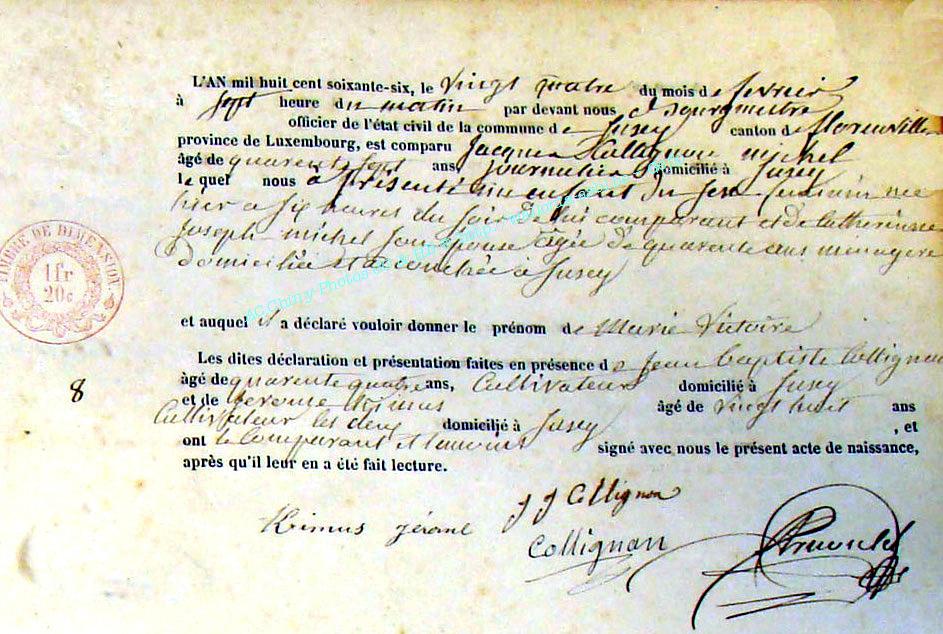 L'AN mil huit cent soixante-six, le vingt quatre du mois de fevrier
à sept heure du matin par devant nous Bourgmestre
officier de l'état civil de la commune de Jusey canton de florenville
province de Luxembourg, est comparu Jacques Collignon michel
âgé de quarente sept ans, journalier domicilié à Jusey
le quel nous à présenté un enfant du sexe feminin née
hier a six heures du soir de lui comparant et de Catherinne
joseph-michel son epouse agée de quarente ans menagere
domiciliée et acouchée à Jusey
TIMBRE DE DIMENSION.
1fr
20c
et auquel il a déclaré vouloir donner le prénom de Marie-Victoire
Les dites déclaration et présentation faites en présence de Jean Baptiste Collignon
8
âgé de quarente quatre ans, Cultivateur domicilié à Jusey
et de Gerome Krimus âgé de vingt huit ans
Cultivateur les deux domicilié à Jusey , et
ont le Comparant et temoins signé avec nous le présent acte de naissance,
après qu'il leur en a été fait lecture.
J J Collignon
Krimus jérome
Collignon